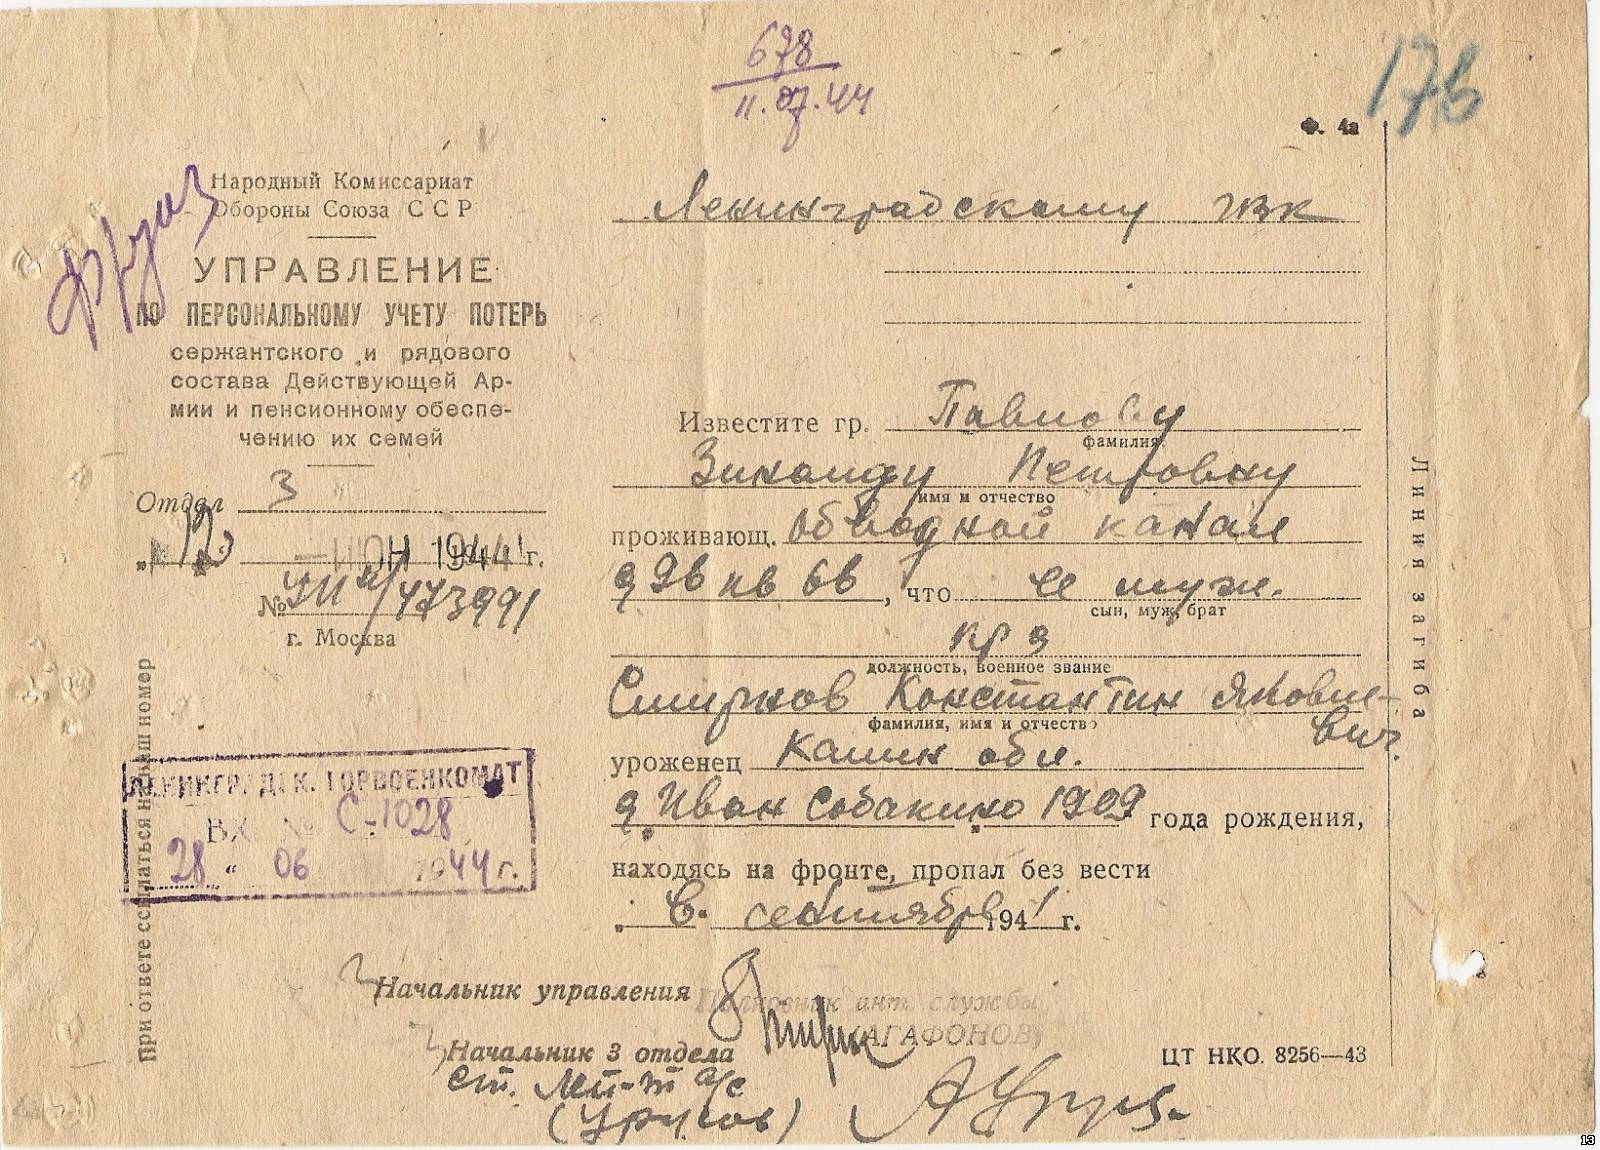 678
11.07.44
17в
Ф. 4а
Народный Комиссариат
Обороны Союза ССР
УПРАВЛЕНИЕ
ПО ПЕРСОНАЛЬНОМУ УЧЕТУ ПОТЕРЬ
сержантского и рядового
состава Действующей Ар-
мии и пенсионному обеспе-
чению их семей
Отдел 3
„12" ИЮН 1944 г.
№ /473991
г. Москва
При ответе ссылаться на наш номер
ЛЕНИНГРАДСК. ГОРВОЕНКОМАТ
ВХ № С-1028
28 " 06 1944 г.
Ленинградскому ГВК
Известите гр. Павлову
фамилия
Зинаиду Петровну
имя и отчество
проживающ. Обводной канал
д 26 кв 66, что ее муж.
сын, муж, брат
кр-ц
должность, военное звание
Смирнов Константин Яковле-
вич.
фамилия, имя и отчество
уроженец Калин обл.
д. Иван Собакино 1909 года рождения,
находясь на фронте, пропал без вести
„ в. сентябре 1941 г.
Начальник управления Полковник инт. службы
(АГАФОНОВ)
Начальник 3 отдела
ст. лей-т а/с
(Урусов)
ЦТ НКО. 8256—43
Линия загиба
13